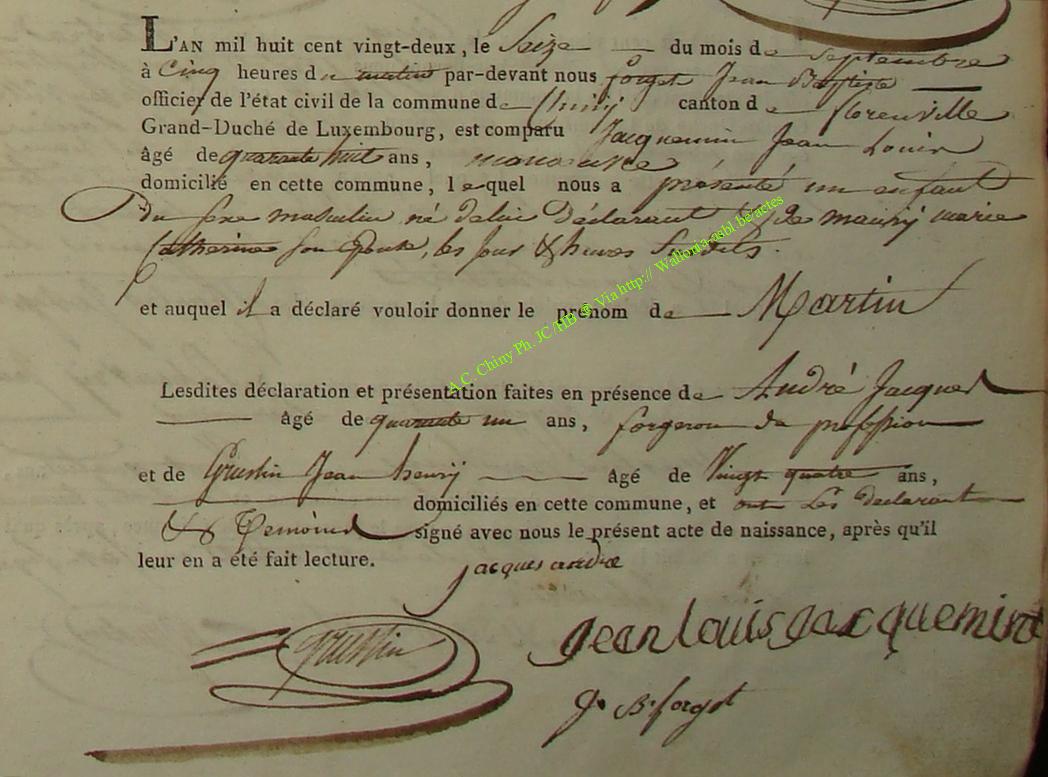 L'AN mil huit cent vingt-deux, le Seize du mois de septembre
à Cinq heures du matin par-devant nous forget Jean Baptiste
officier de l'état civil de la commune de Chiny canton de florenville
Grand-Duché de Luxembourg, est comparu Jacquemin Jean Louis
âgé de quarante huit ans, manoeuvre
domicilié en cette commune, lequel nous a présenté un enfant
Du sexe masculin né de lui Déclarant & de mauny marie
Catherine son Epouse, les jour & heures Susdits.
et auquel il a déclaré vouloir donner le prénom de Martin
Lesdites déclaration et présentation faites en présence de André Jacques
âgé de quarante un ans, forgeron de profession
et de Grustin Jean henry âgé de Vingt quatre ans,
domiciliés en cette commune, et ont Les Declarant
& Temoins signé avec nous le présent acte de naissance, après qu'il
leur en a été fait lecture.
jacques andré
grustin
jean louis jacquemin
J. B. forget
A.C. Chiny Ph. JC /HB @ Via http:// Wallonia-asbl.be/actes